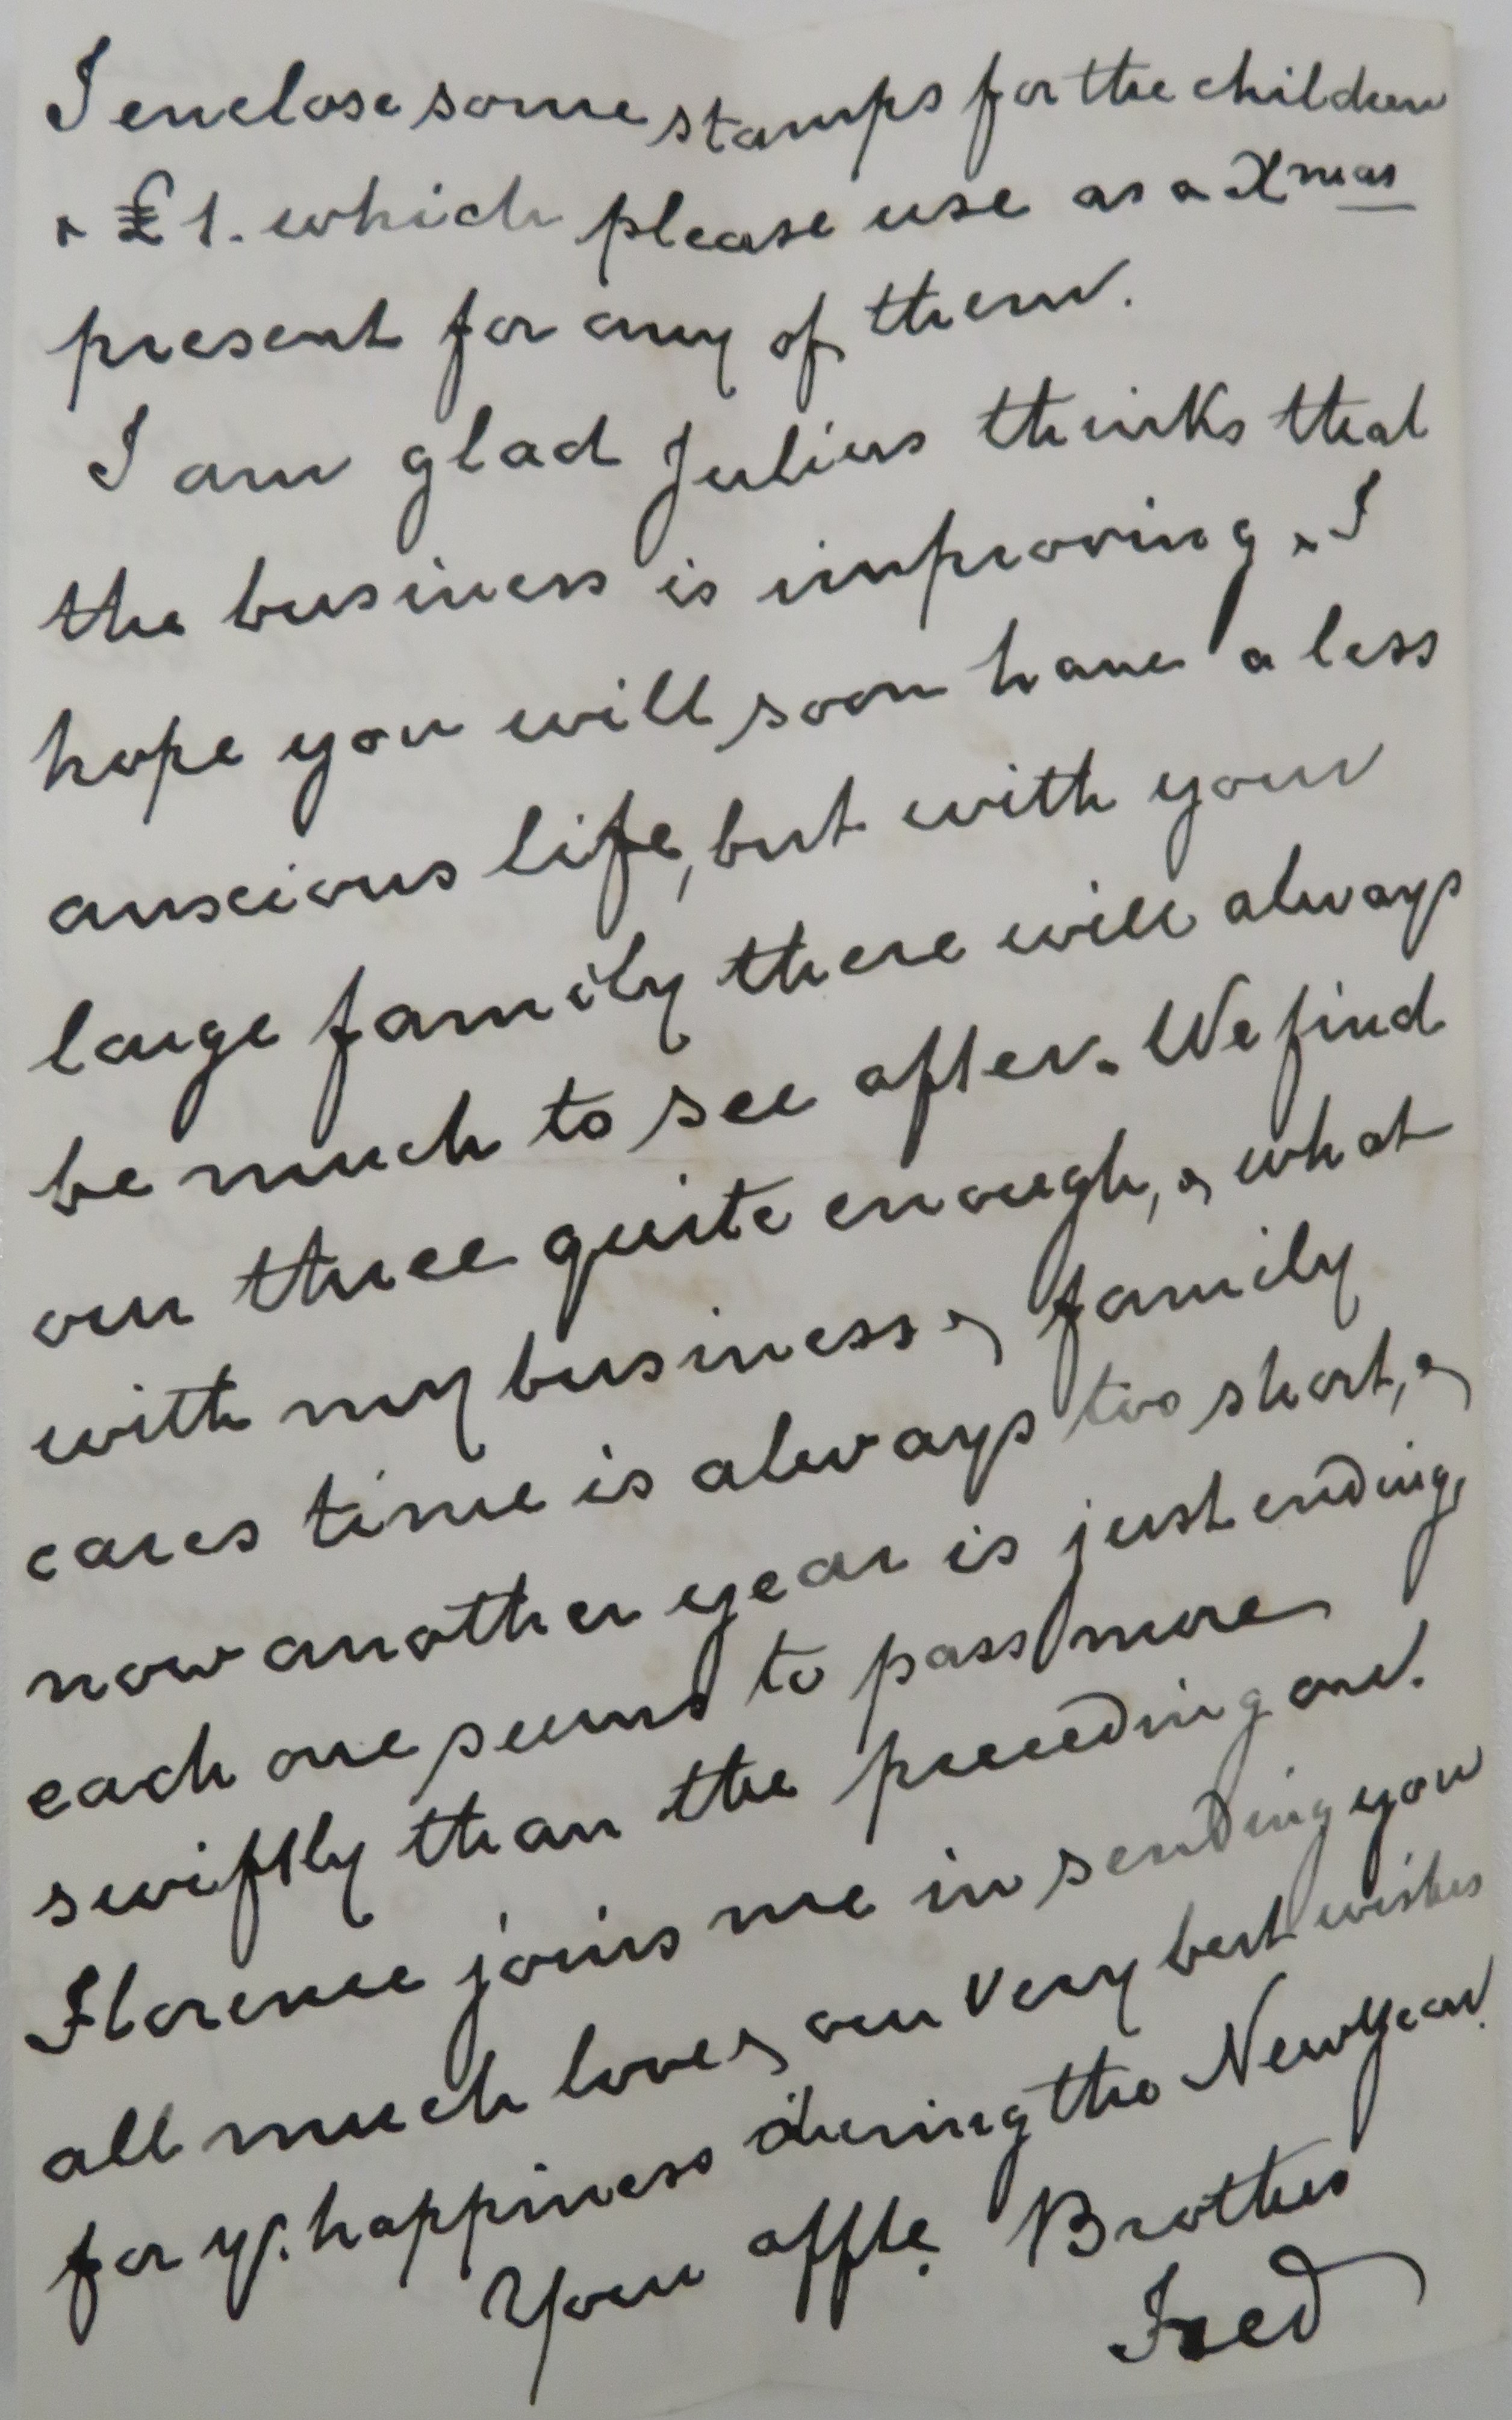 I enclose some stamps for the children
& £1. which please use as a Xmas
present for any of them.
I am glad Julius thinks that
the business is improving & I
hope you will soon have a less
anxious life, but with your
large family there will always
be much to see after. We find
our three quite enough, & what
with my business & family
cares time is always too short, &
now another year is just ending,
each one seems to pass more
swiftly than the preceeding one.
Florence joins me in sending you
all much love & our very best wishes
for yr. happiness during the New Year.
Your affte. Brother
Fred